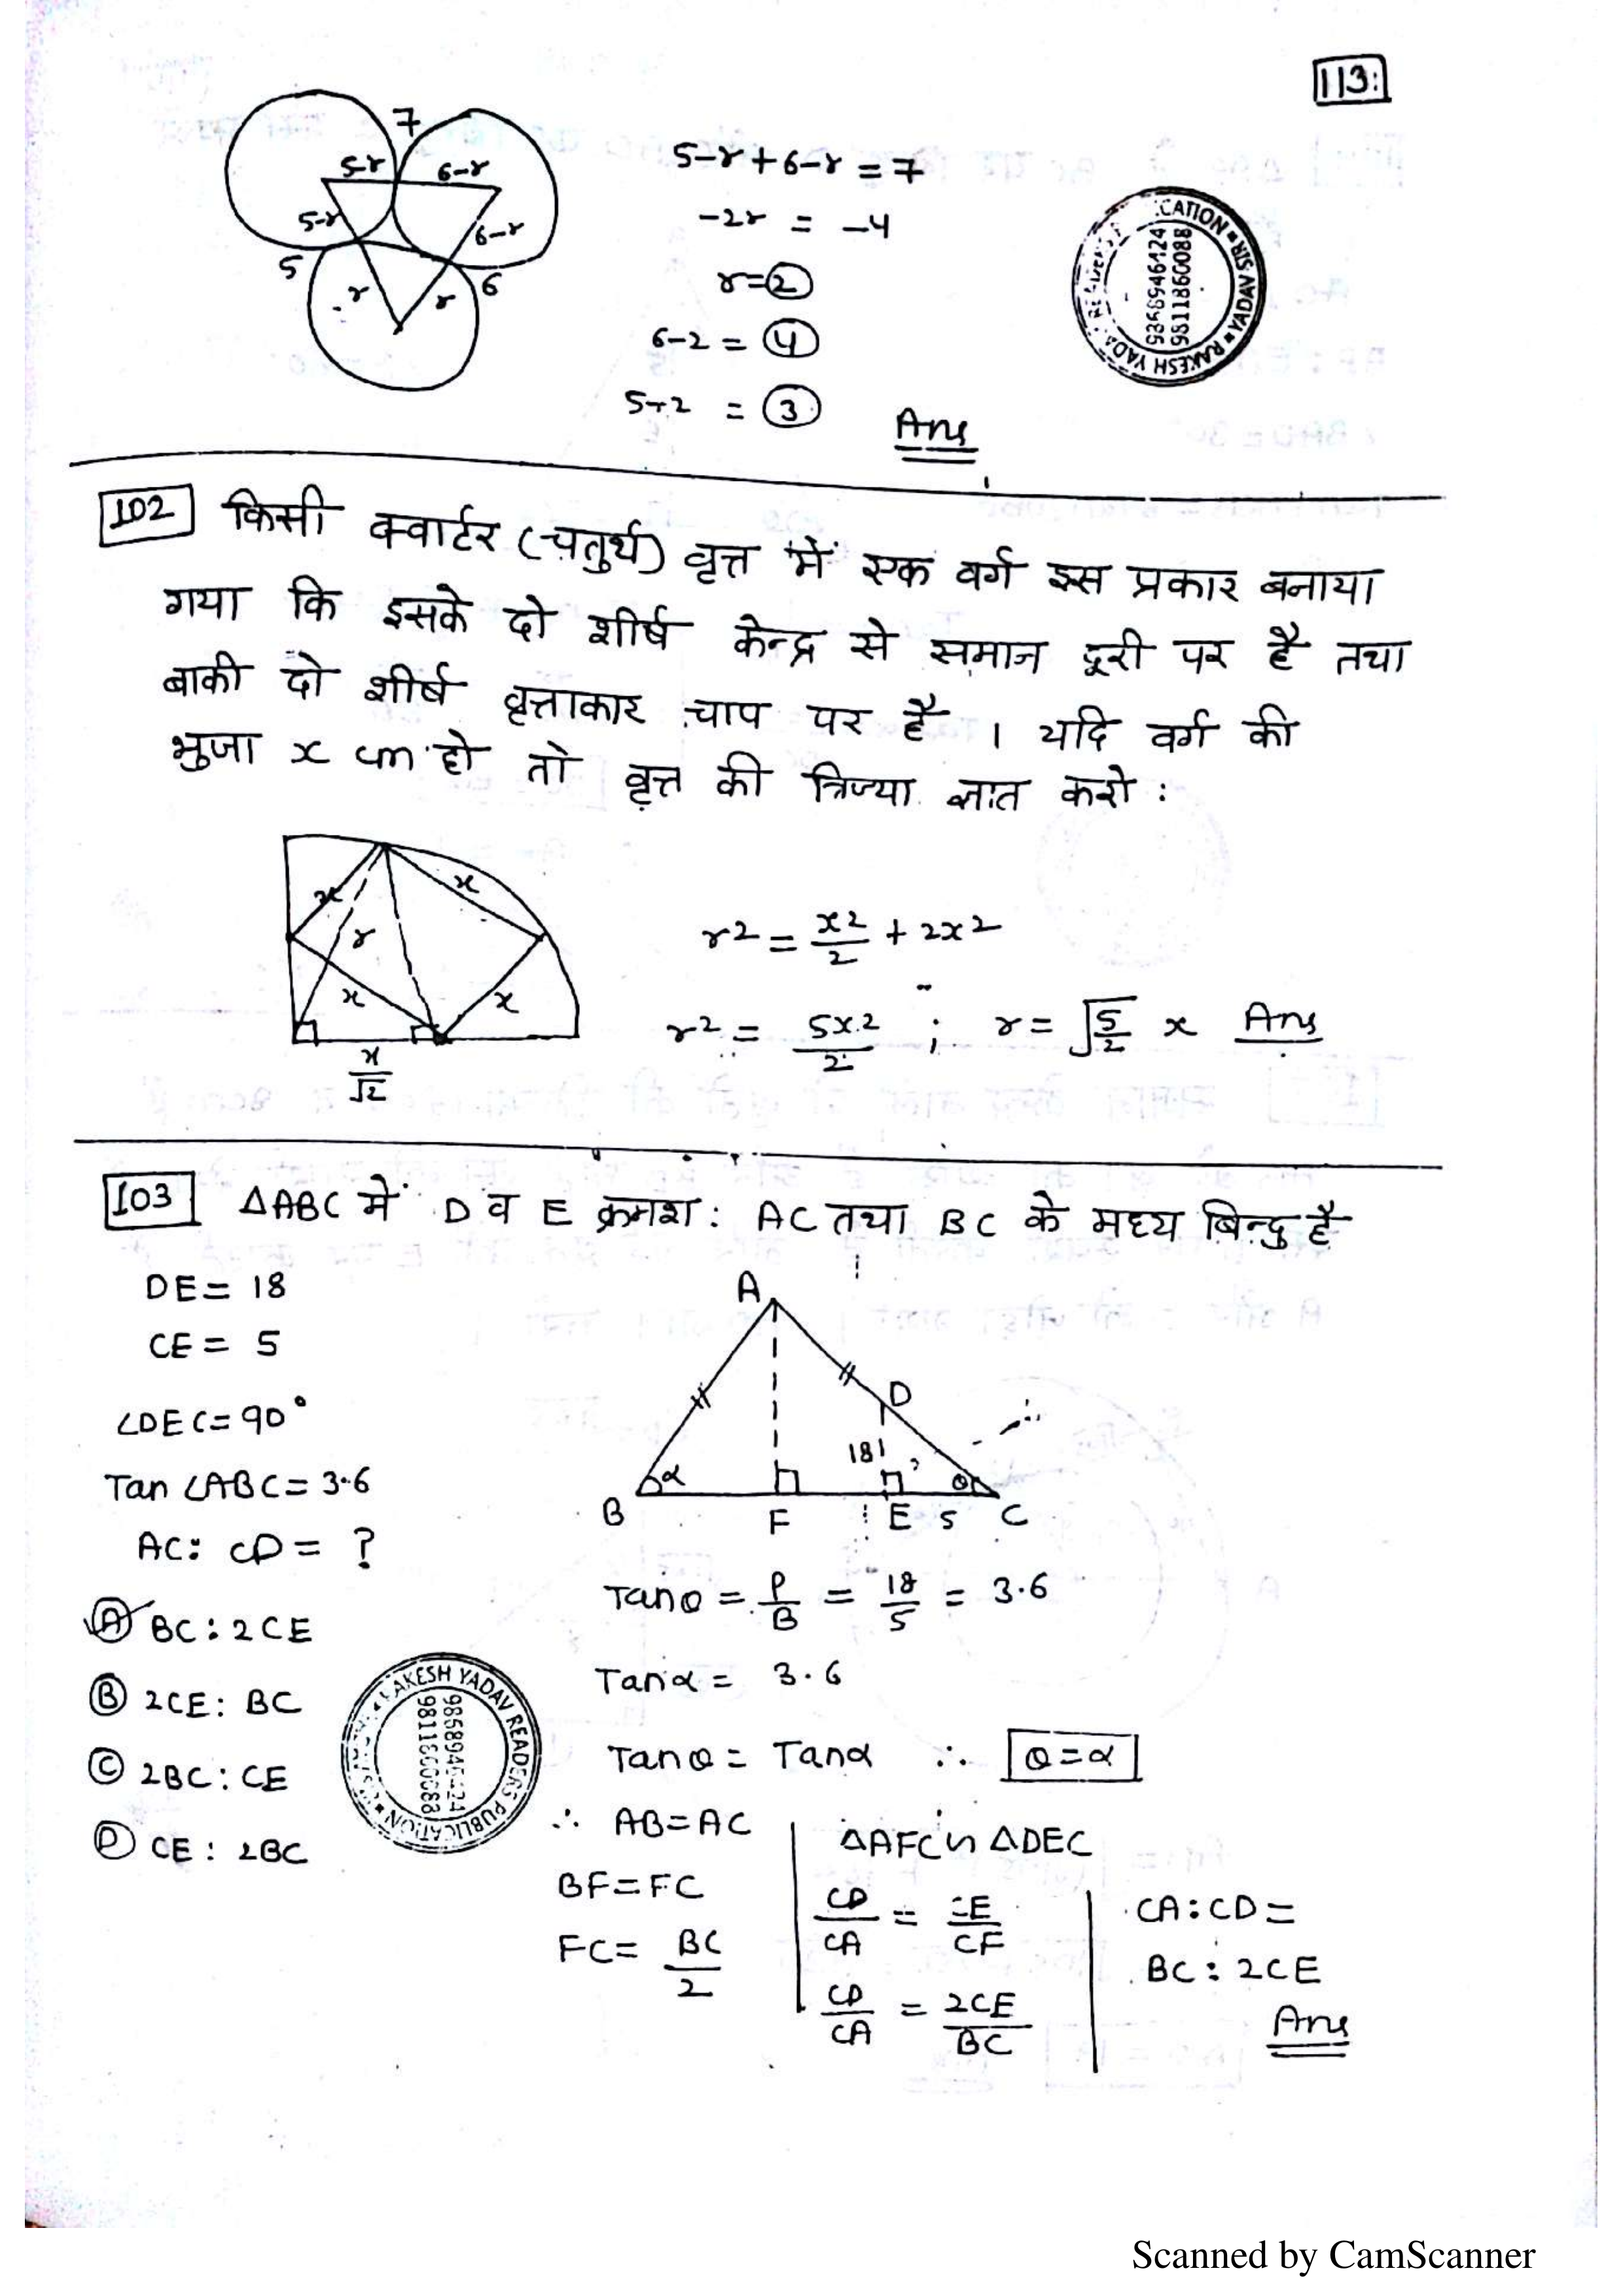 113:
7
5-r 6-r
5-r 6-r
5 6
r r
5-r+6-r = 7
-2r = -4
r=2
6-2 = 4
5-2 = 3
Ans
CATION RIS YADAV RAKESH YADAV
9868946124
9811860088
102 किसी क्वार्टर (चतुर्थ) वृत्त में एक वर्ग इस प्रकार बनाया
गया कि इसके दो शीर्ष केन्द्र से समान दूरी पर है तथा
बाकी दो शीर्ष वृत्ताकार चाप पर है । यदि वर्ग की
भुजा x cm हो तो वृत्त की त्रिज्या ज्ञात करो :
x x
r
x x
x/√2
r2 = x2/2 + 2x2
r2 = 5x2/2 ; r = √5/2 x Ans
103 ΔABC में D व E क्रमश: AC तथा BC के मध्य बिन्दु है
DE = 18
CE = 5
∠DEC = 90°
Tan ∠ABC = 3.6
AC: CD = ?
A BC : 2CE
B 2CE : BC
C 2BC : CE
D CE : 2BC
A
D
18
α θ
B F E 5 C
Tanθ = P/B = 18/5 = 3.6
Tanα = 3.6
Tanθ = Tanα ∴ θ=α
∴ AB=AC
BF=FC
FC = BC/2
ΔAFC ∽ ΔDEC
CD/CA = CE/CF
CD/CA = 2CE/BC
CA:CD =
BC : 2CE
Ans
RAKESH YADAV READERS PUBLICATION
9811860088
Scanned by CamScanner